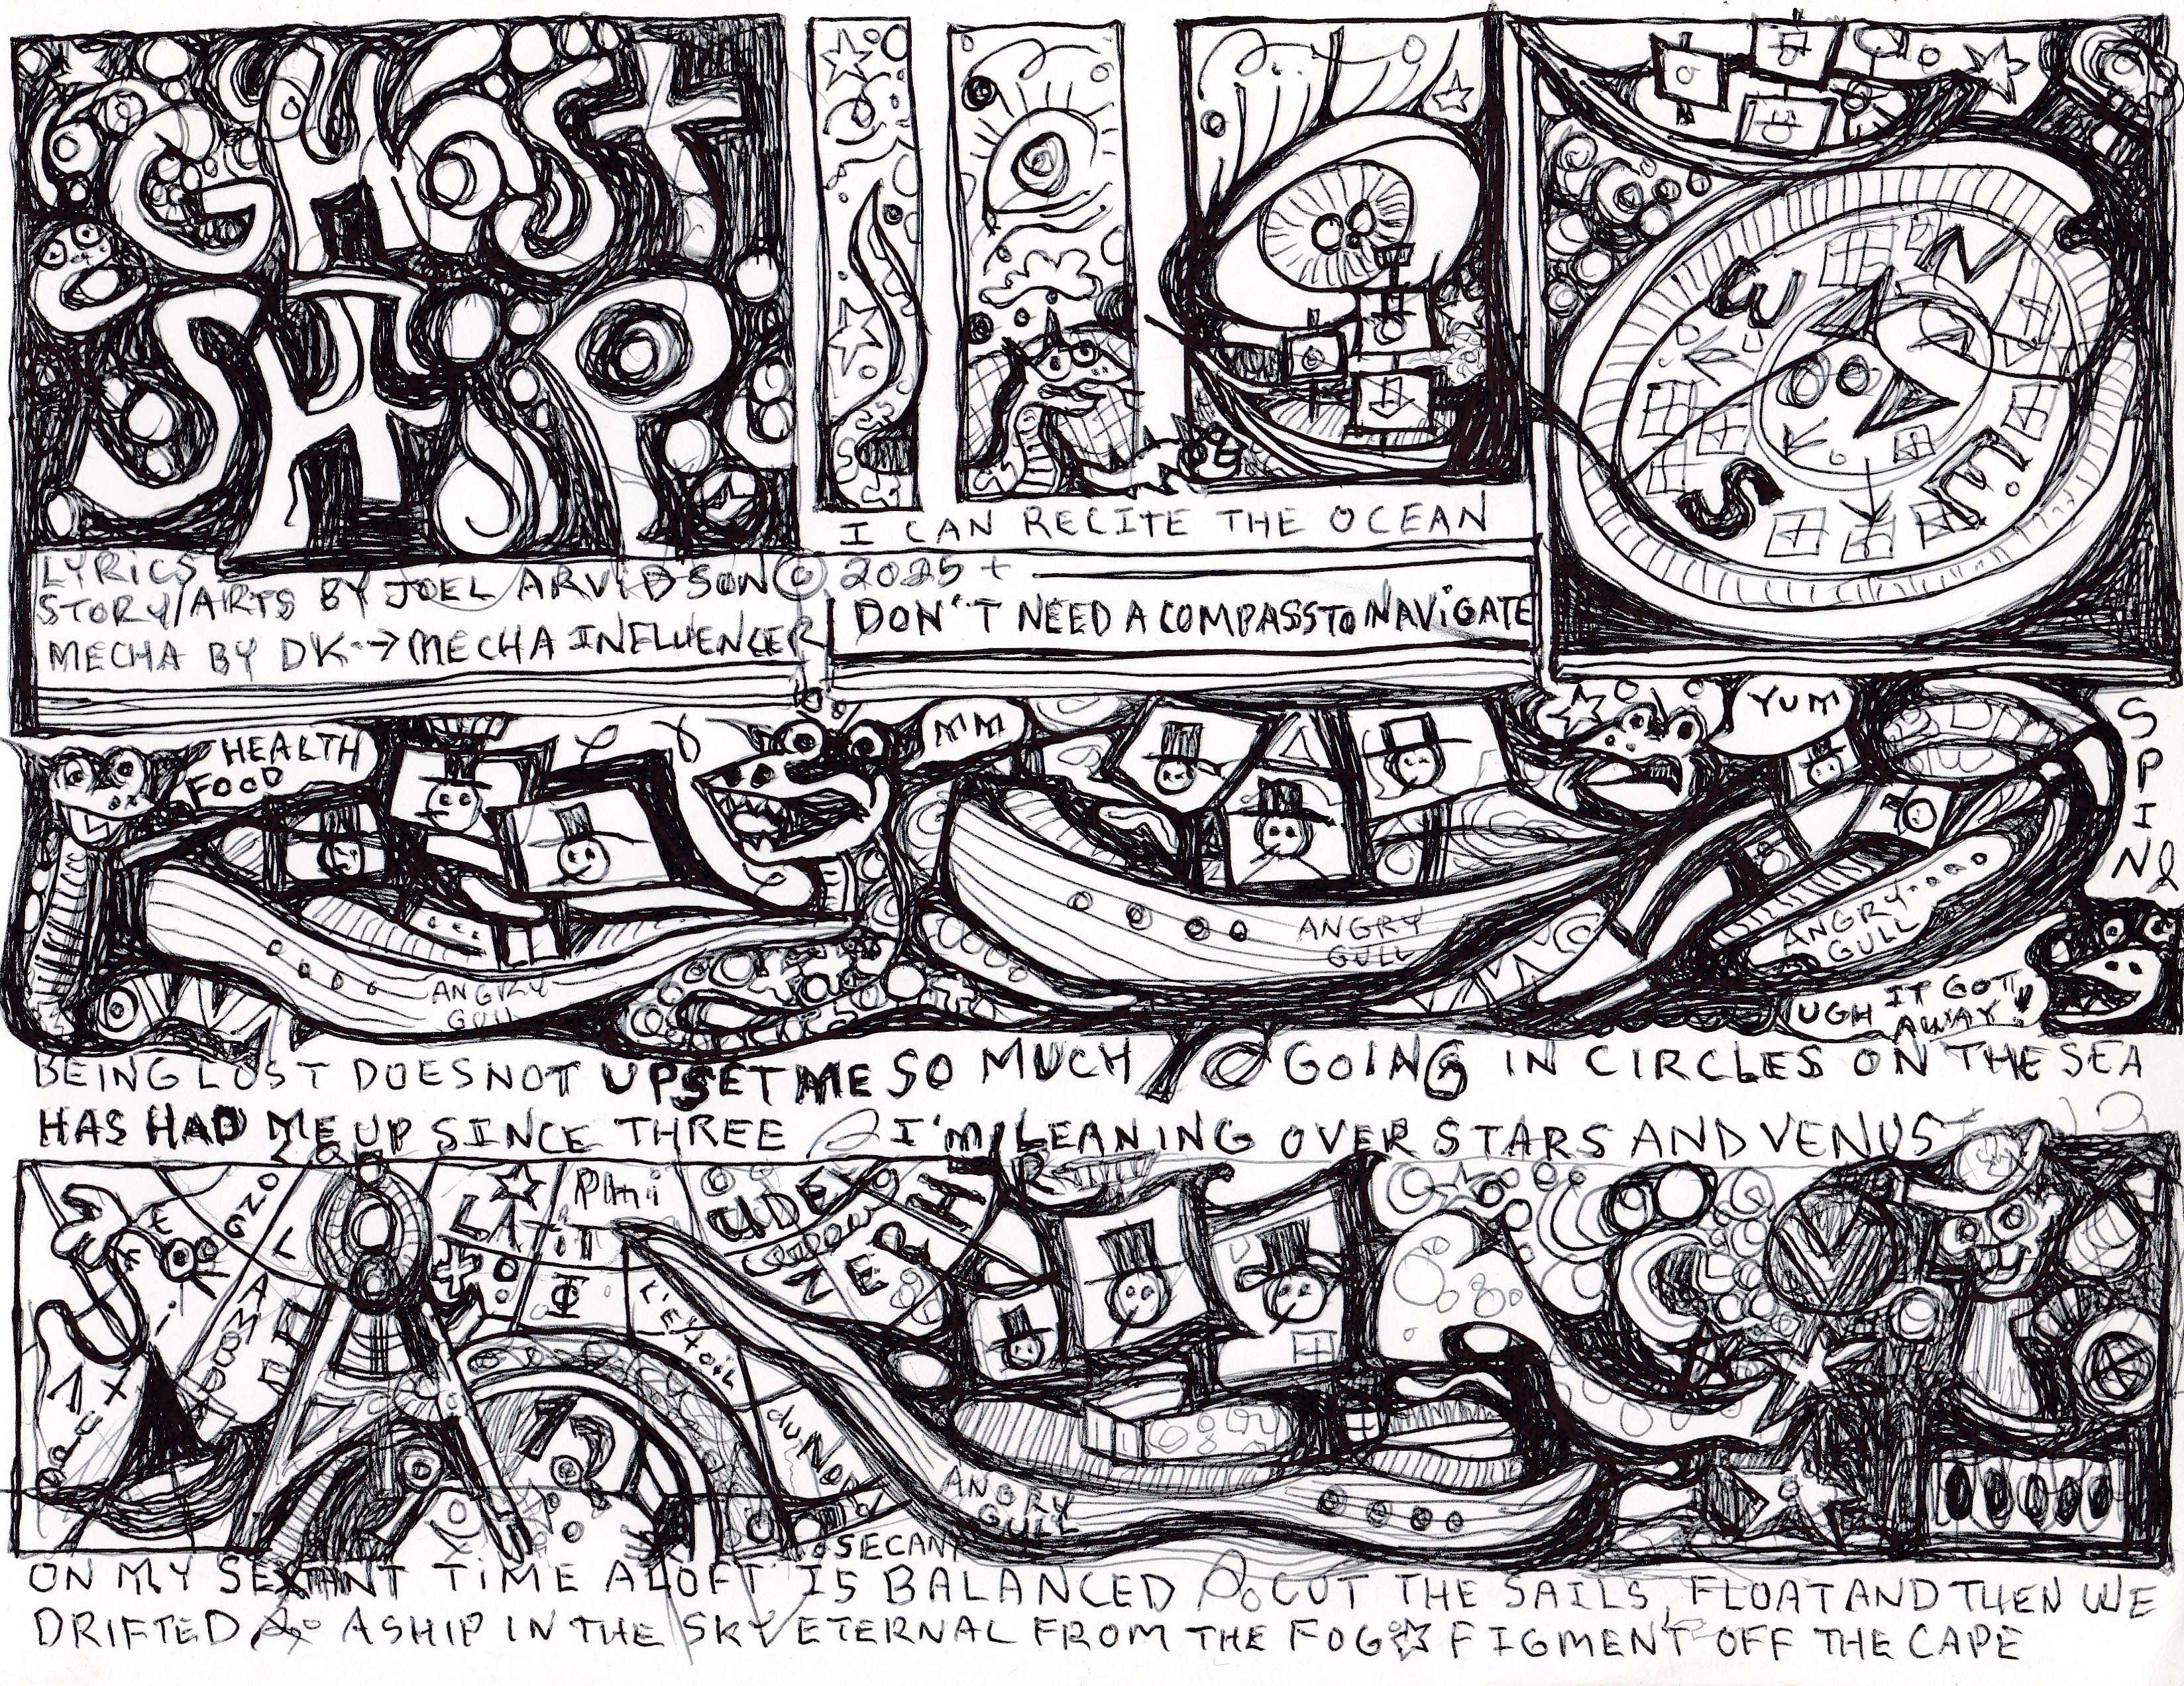 GHOST
SHIP
LYRICS
STORY/ARTS BY JOEL ARVIDSON © 2025+
MECHA BY DK → MECHA INFLUENCER
I CAN RECITE THE OCEAN
DON'T NEED A COMPASS TO NAVIGATE
N
W
S
E
HEALTH
FOOD
MM
YUM
SPIN
ANGRY
GULL
ANGRY
GULL
ANGRY
GULL
UGH IT GOT
AWAY!
BEING LOST DOES NOT UPSET ME SO MUCH GOING IN CIRCLES ON THE SEA
HAS HAD ME UP SINCE THREE I'M LEANING OVER STARS AND VENUS
LAMBDA
Phi
ANGRY
GULL
SECANT
ON MY SEXTANT TIME ALOFT IS BALANCED CUT THE SAILS, FLOAT AND THEN WE
DRIFTED A SHIP IN THE SKY ETERNAL FROM THE FOG ☆ FIGMENT OFF THE CAPE